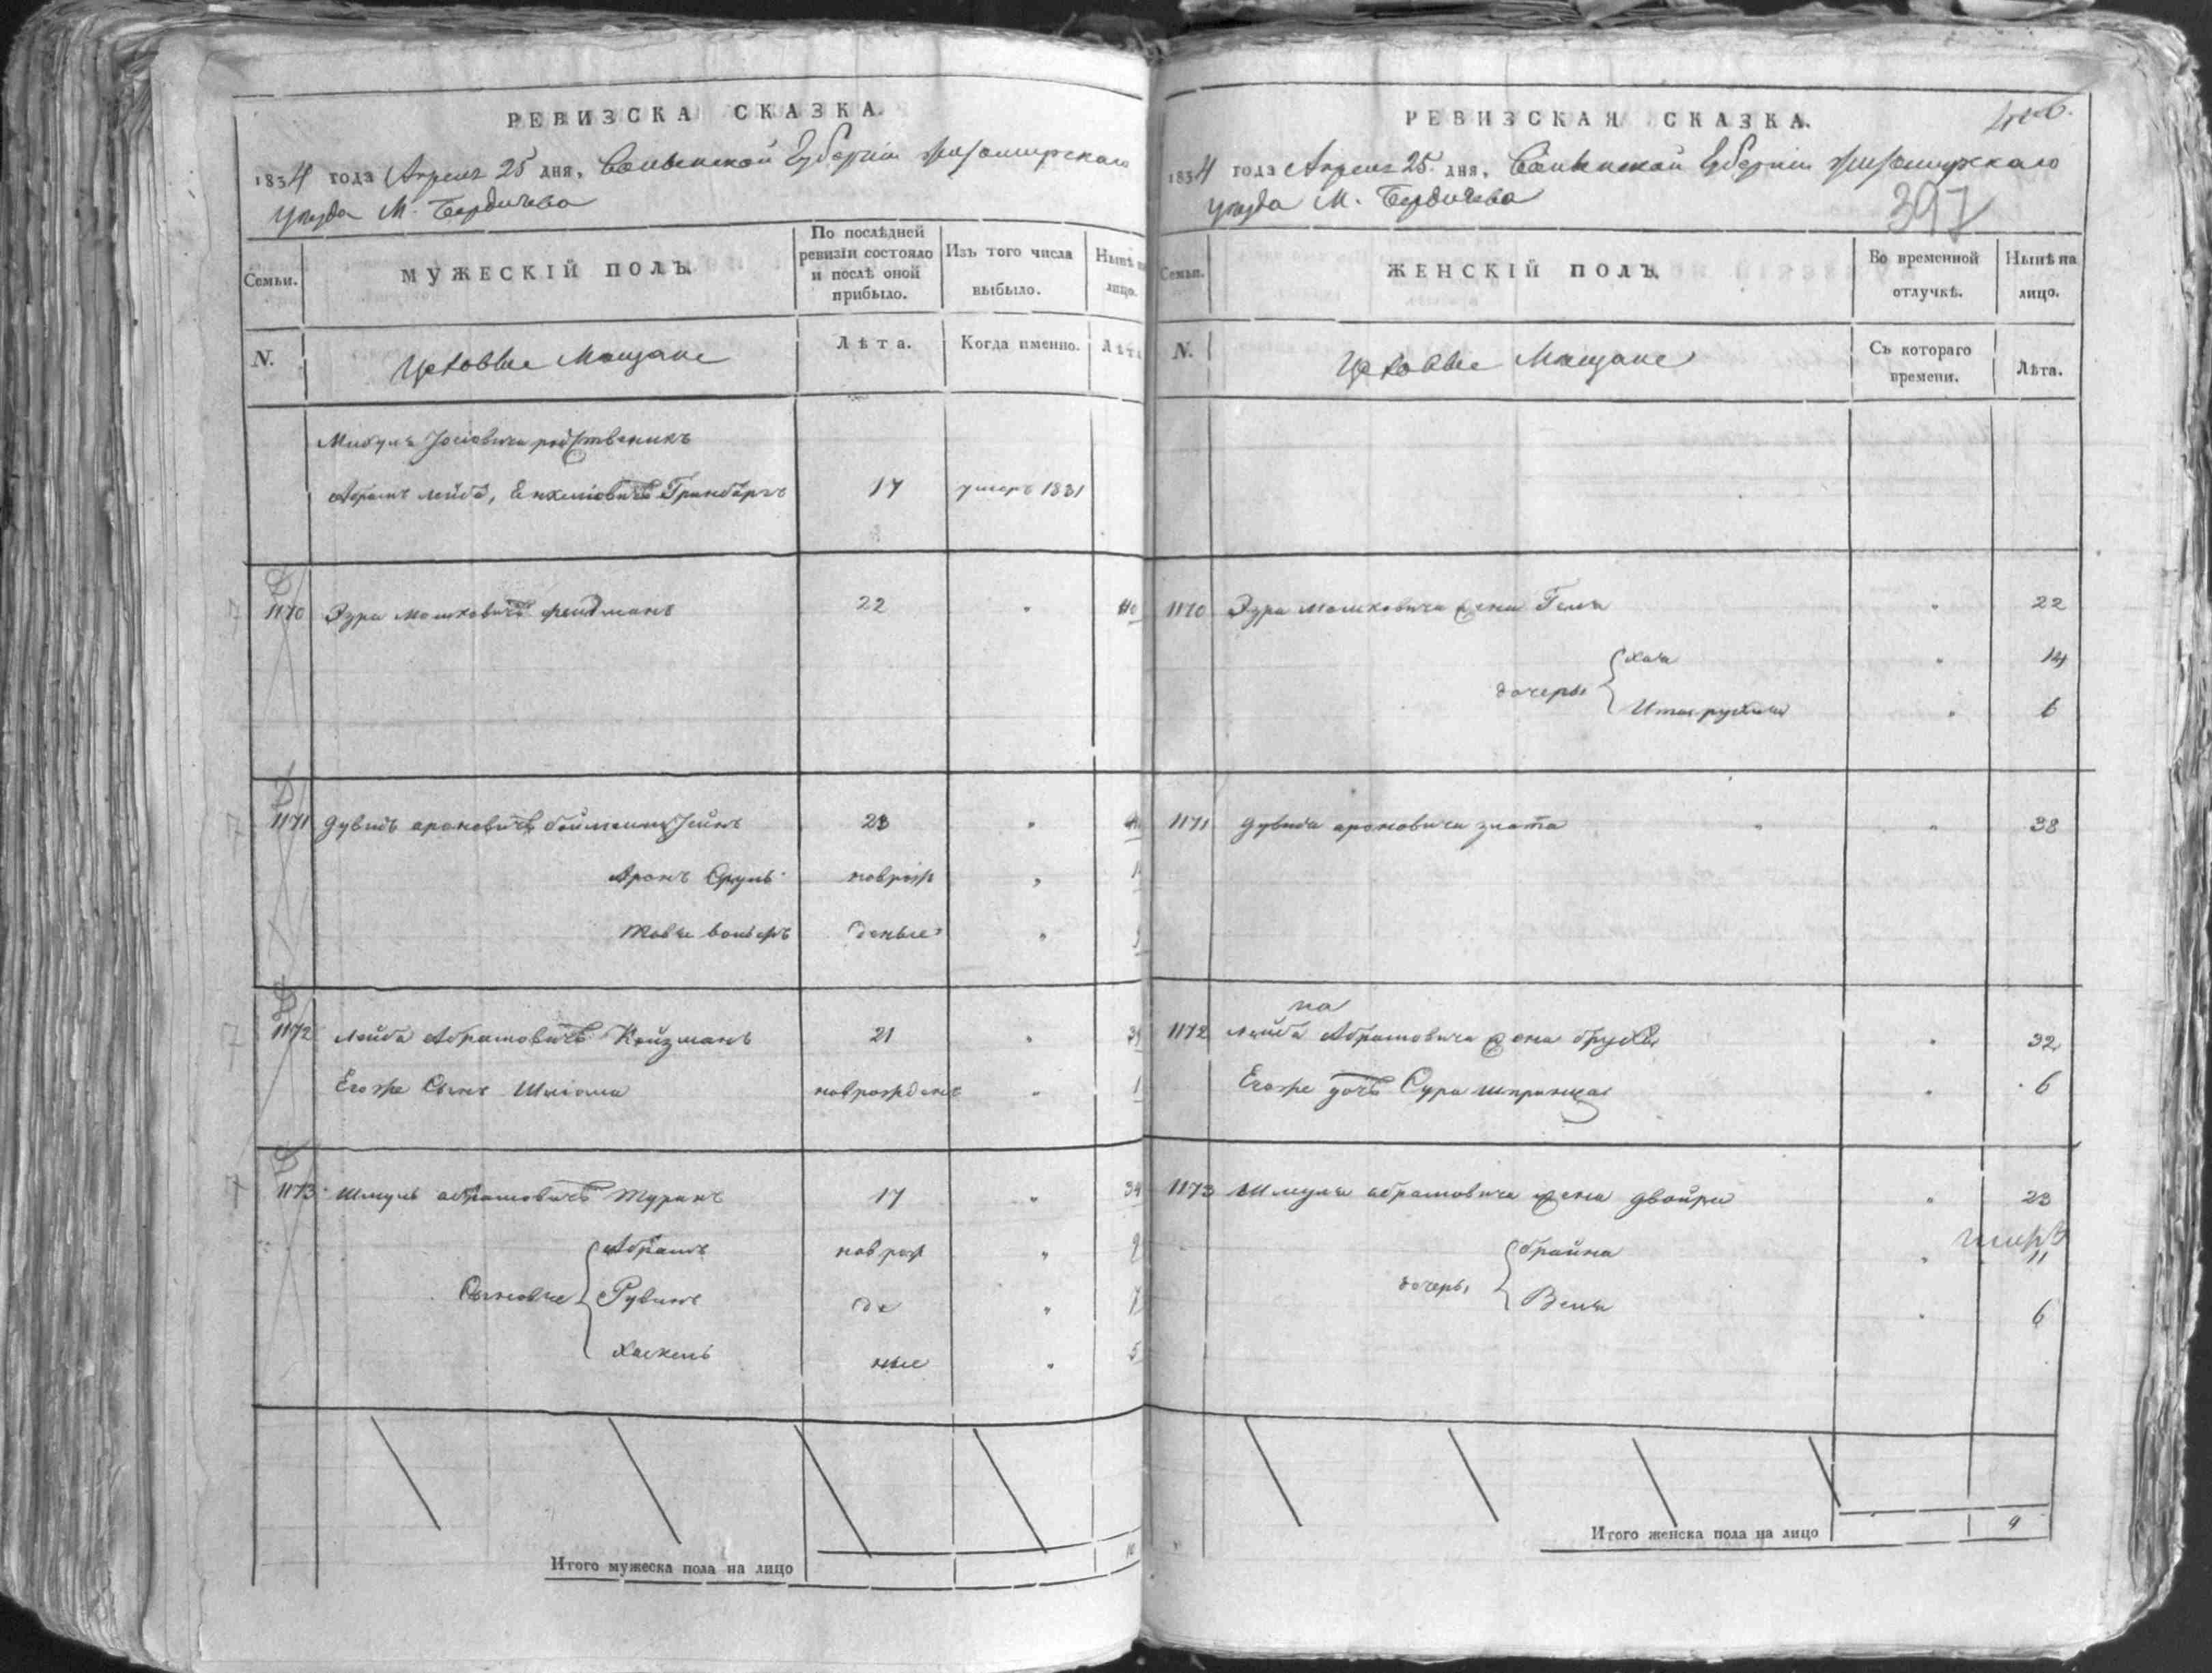 РЕВИЗСКА СКАЗКА.
1834 года Апреля 25 дня, Волынской Губерніи Житомирскаго
уезда М. Бердичева
Семьи.
МУЖЕСКІЙ ПОЛЪ.
По послѣдней
ревизіи состояло
и послѣ оной
прибыло.
Изъ того числа
выбыло.
Нынѣ на
лицо.
N.
Цеховые Мещане
Лѣта.
Когда именно.
Лѣта
Іосіовича родственикъ
Абрамъ лейба, Гринбергъ 17 умеръ 1831
1170 Эзра мошковичъ 22 " 40
1171 Дувидъ ароновичъ 23 "
Аронъ Сруль новрож "
вольфъ деные "
1172 Лейба Абрамовичъ Койзманъ 21 "
Егоже Сынъ Шліома новрожденъ " 1
1173 Шмуль абрамовичъ Туранъ 17 "
Сыновье
Абрамъ новрож "
Рувинъ де " 7
Хаскель ные " 5
Итого мужеска пола на лицо 10
РЕВИЗСКАЯ СКАЗКА.
1834 года Апреля 25 дня, Волынской Губерніи Житомирскаго
уезда М. Бердичева
397
Семьи.
ЖЕНСКІЙ ПОЛЪ.
Во временной
отлучкѣ.
Нынѣ на
лицо.
N.
Цеховые Мещане
Съ котораго
времени.
Лѣта.
1170 Эзра мошковича жена " 22
дочеры
Хая " 14
" 6
1171 Дувида ароновича злата " " 38
1172 Лейба Абрамовича жена " 32
Егоже дочь Сура шпринца " 6
1173 Шмуля абрамовича жена двойра " 23
дочеры
брайна " 11
" 6
Итого женска пола на лицо 9